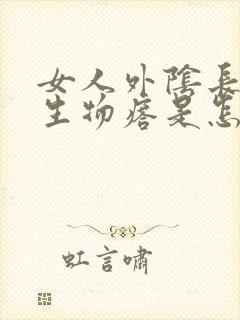 女人外陰長
生物痞是怎
虹言嘯